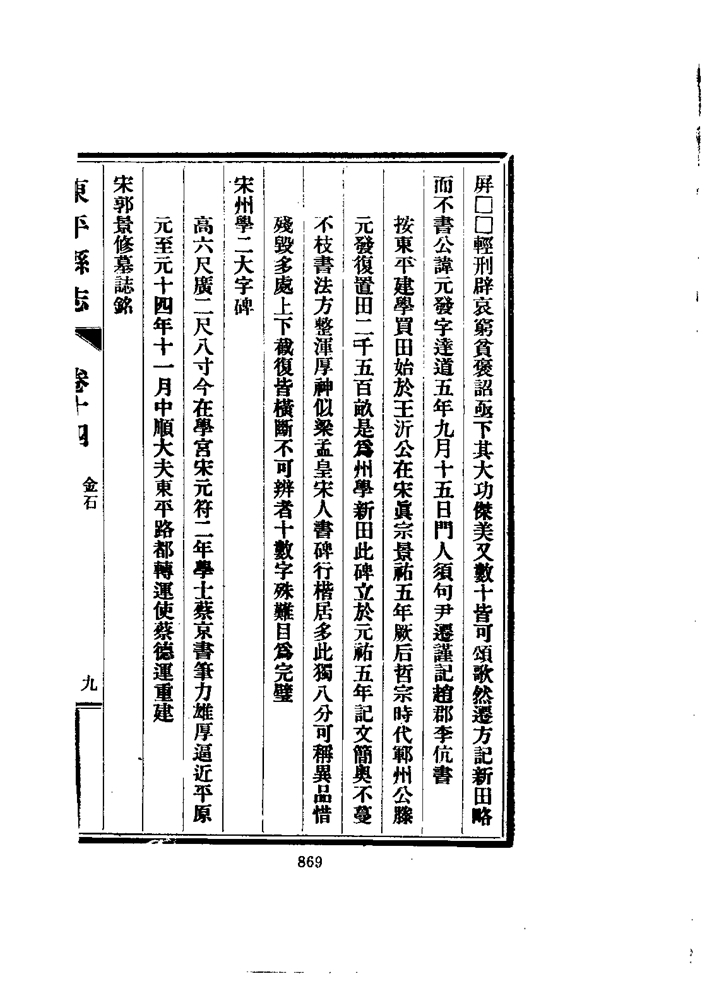 屏□□輕刑辟哀窮貧褒詔亟下其大功傑美又數十皆可頌歌然遷方記新田略
而不書公諱元發字達道五年九月十五日門人須句尹遷謹記趙郡李伉書
按東平建學買田始於王沂公在宋眞宗景祐五年厥后哲宗時代鄆州公滕
元發復置田二千五百畝是爲州學新田此碑立於元祐五年記文簡奧不蔓
不枝書法方整渾厚神似梁孟皇宋人書碑行楷居多此獨八分可稱異品惜
殘毀多處上下截復皆橫斷不可辨者十數字殊難目爲完璧
宋州學二大字碑
高六尺廣二尺八寸今在學宮宋元符二年學士蔡京書筆力雄厚逼近平原
元至元十四年十一月中順大夫東平路都轉運使蔡德運重建
宋郭景修墓誌銘
東平縣志 卷十四 金石 九
869